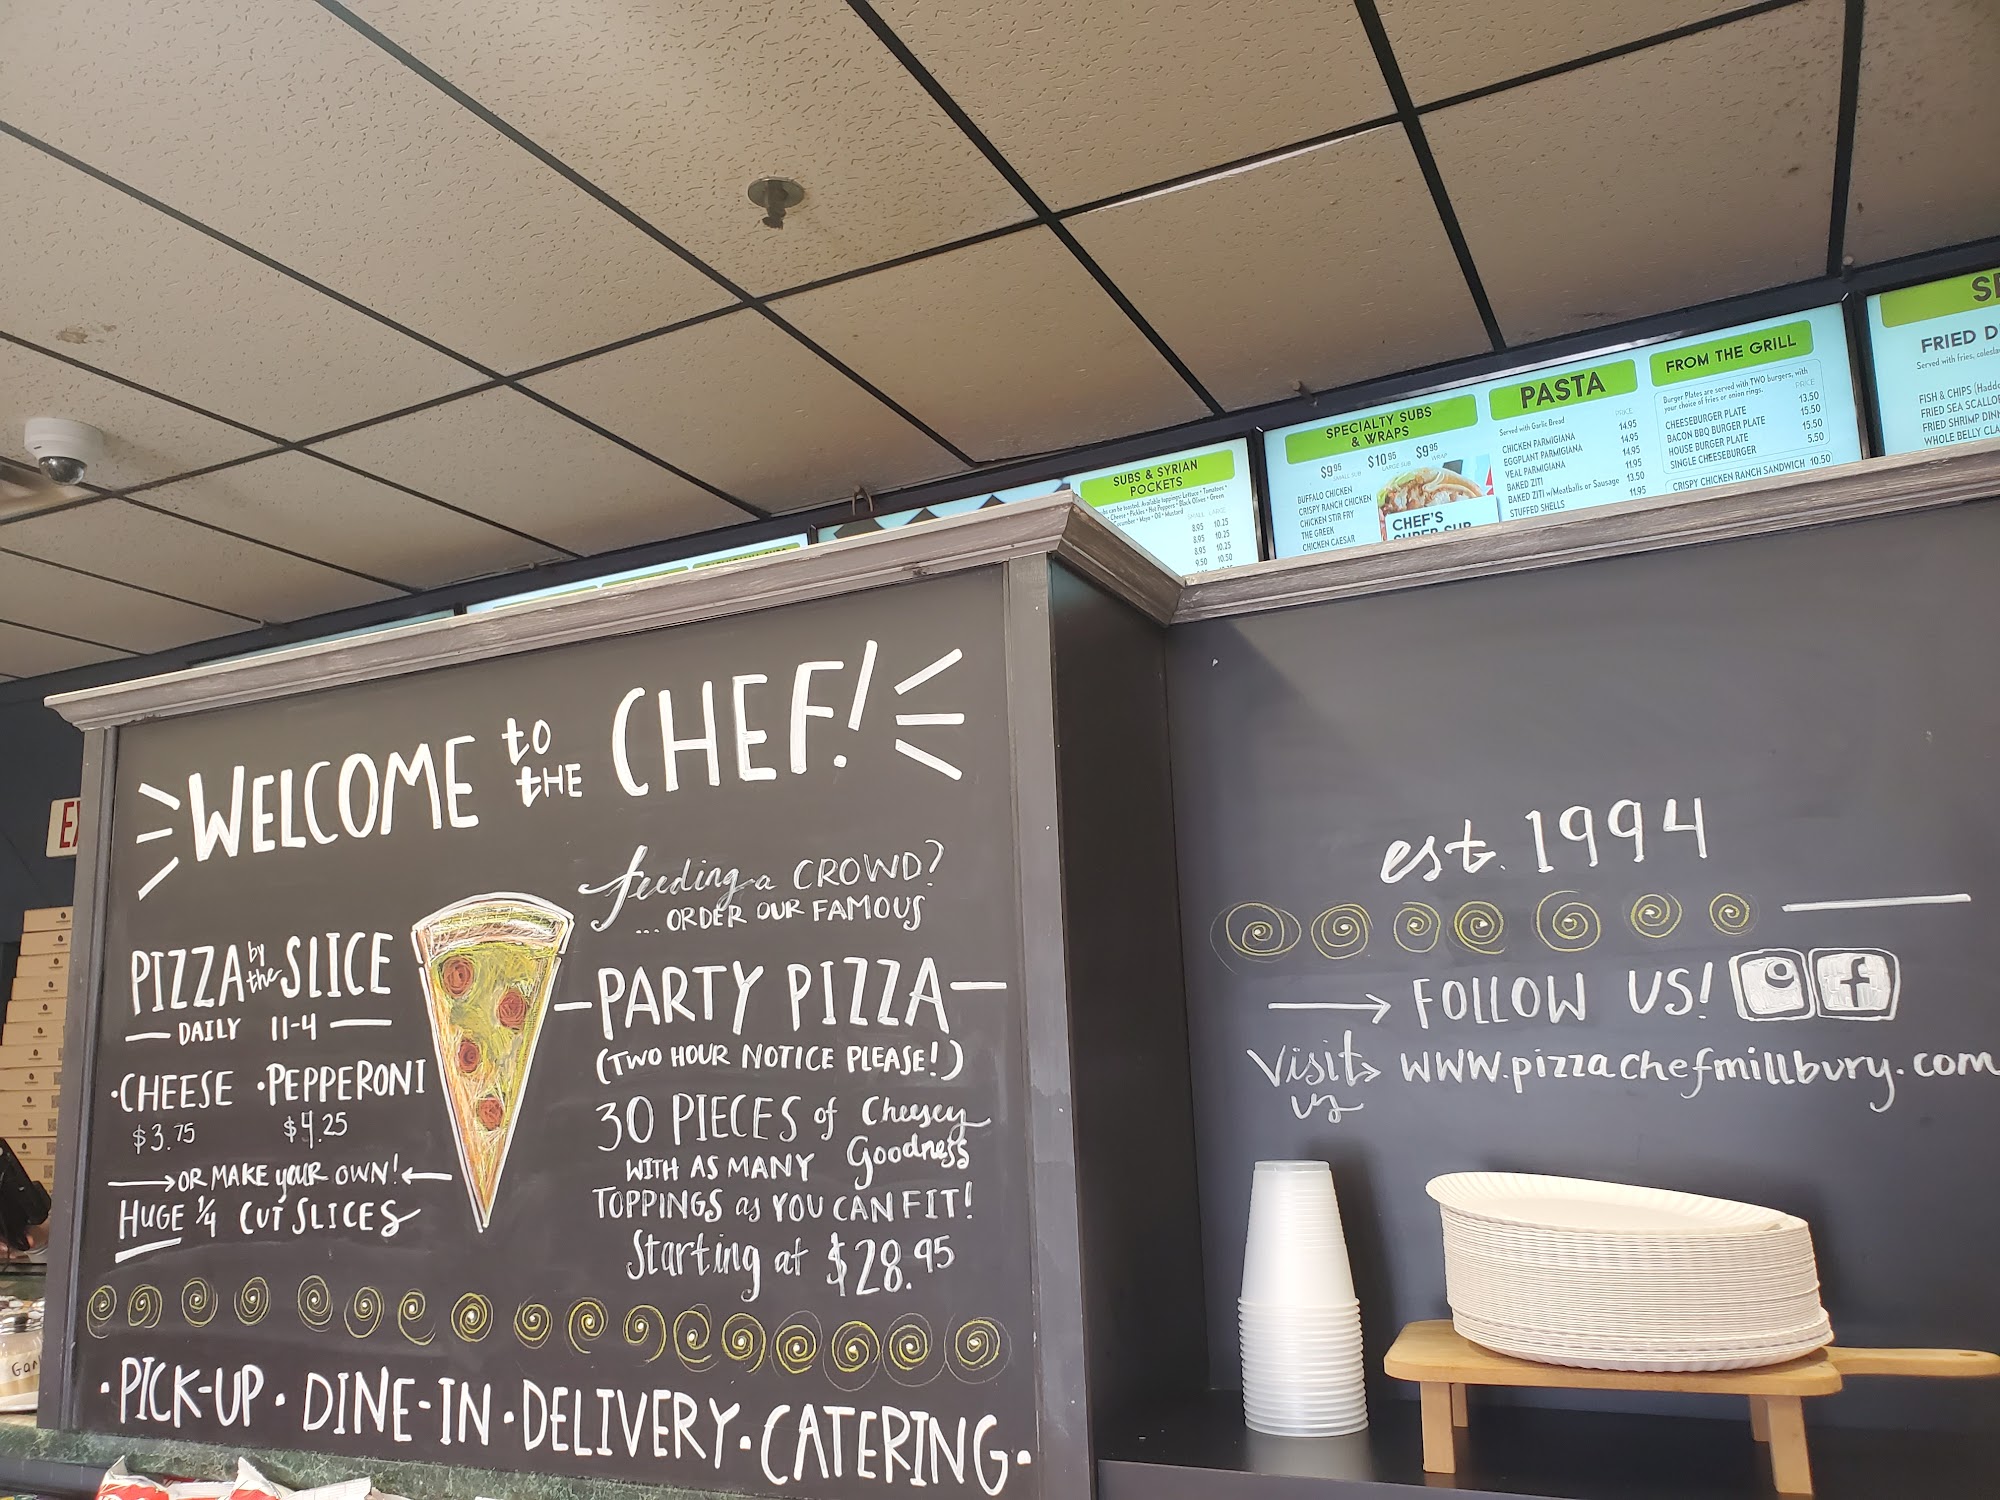 WELCOME to the CHEF!
feeding a CROWD?
... ORDER OUR FAMOUS
PARTY PIZZA
(TWO HOUR NOTICE PLEASE!)
30 PIECES of Cheesey
Goodness
WITH AS MANY
TOPPINGS as YOU CAN FIT!
Starting at $28.95
PIZZA by the SLICE
DAILY 11-4
·CHEESE ·PEPPERONI
$3.75 $4.25
OR MAKE your OWN!
HUGE 1/4 CUT SLICES
·PICK-UP· DINE-IN·DELIVERY·CATERING·
est. 1994
FOLLOW US! f
Visit us www.pizzachefmillbury.com
SUBS & SYRIAN
POCKETS
SMALL LARGE
8.95 10.25
8.95 10.25
8.95 10.25
9.50 10.50
SPECIALTY SUBS
& WRAPS
$9.95 $10.95 $9.95
SMALL SUB LARGE SUB WRAP
BUFFALO CHICKEN
CRISPY RANCH CHICKEN
CHICKEN STIR FRY
THE GREEK
CHICKEN CAESAR
CHEF'S
SUPER SUB
PASTA
PRICE
Served with Garlic Bread
CHICKEN PARMIGIANA 14.95
EGGPLANT PARMIGIANA 14.95
VEAL PARMIGIANA 14.95
BAKED ZITI 11.95
BAKED ZITI w/Meatballs or Sausage 13.50
STUFFED SHELLS 11.95
FROM THE GRILL
Burger Plates are served with TWO burgers, with
your choice of fries or onion rings.
PRICE
CHEESEBURGER PLATE 13.50
BACON BBQ BURGER PLATE 15.50
HOUSE BURGER PLATE 15.50
SINGLE CHEESEBURGER 5.50
CRISPY CHICKEN RANCH SANDWICH 10.50
SE
FRIED D
Served with fries, colesla
FISH & CHIPS (Haddo
FRIED SEA SCALLO
FRIED SHRIMP DIN
WHOLE BELLY CLA
EX
Gar